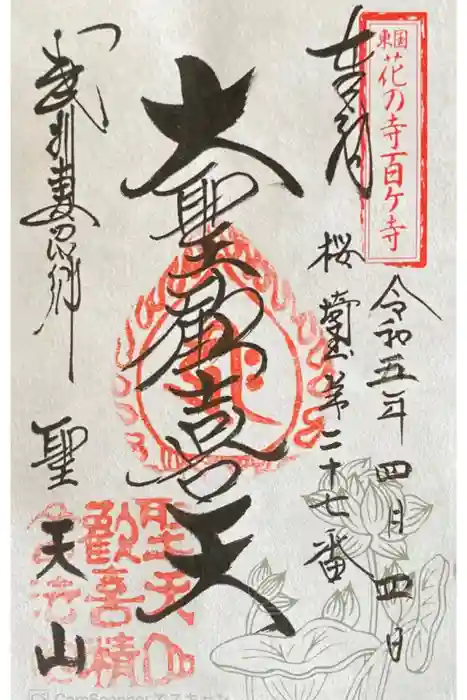 東国
花の寺百ケ寺
令和五年四月四日
桜 埼玉第二十七番
大聖歓喜天
武州妻沼郷
聖天山
聖天山
歡喜
CamScanner